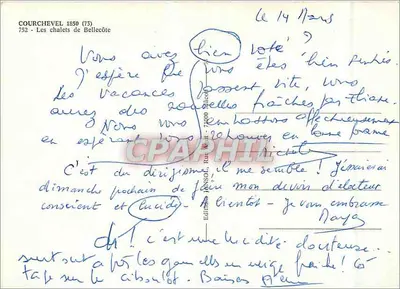 COURCHEVEL 1850 (73)
752 - Les chalets de Bellecôte
Le 14 Mars
Vous avez bien voté ?
J'espère que vous êtes bien rentrés.
Les vacances passent vite, vous
aurez des nouvelles fraîches par
Nous vous embrassons affectueusement
en espérant vous retrouver en bonne forme
C'est du dirigisme il me semble ! J'essaierai
dimanche prochain de faire mon devoir d'électeur
conscient et lucide. A bientôt - Je vous embrasse
Ah ! c'est une lucidité douteuse
surtout après les gamelles en neige fraîche ! Ça
tape sur le ciboulot. Baisers
CPARAPHIL